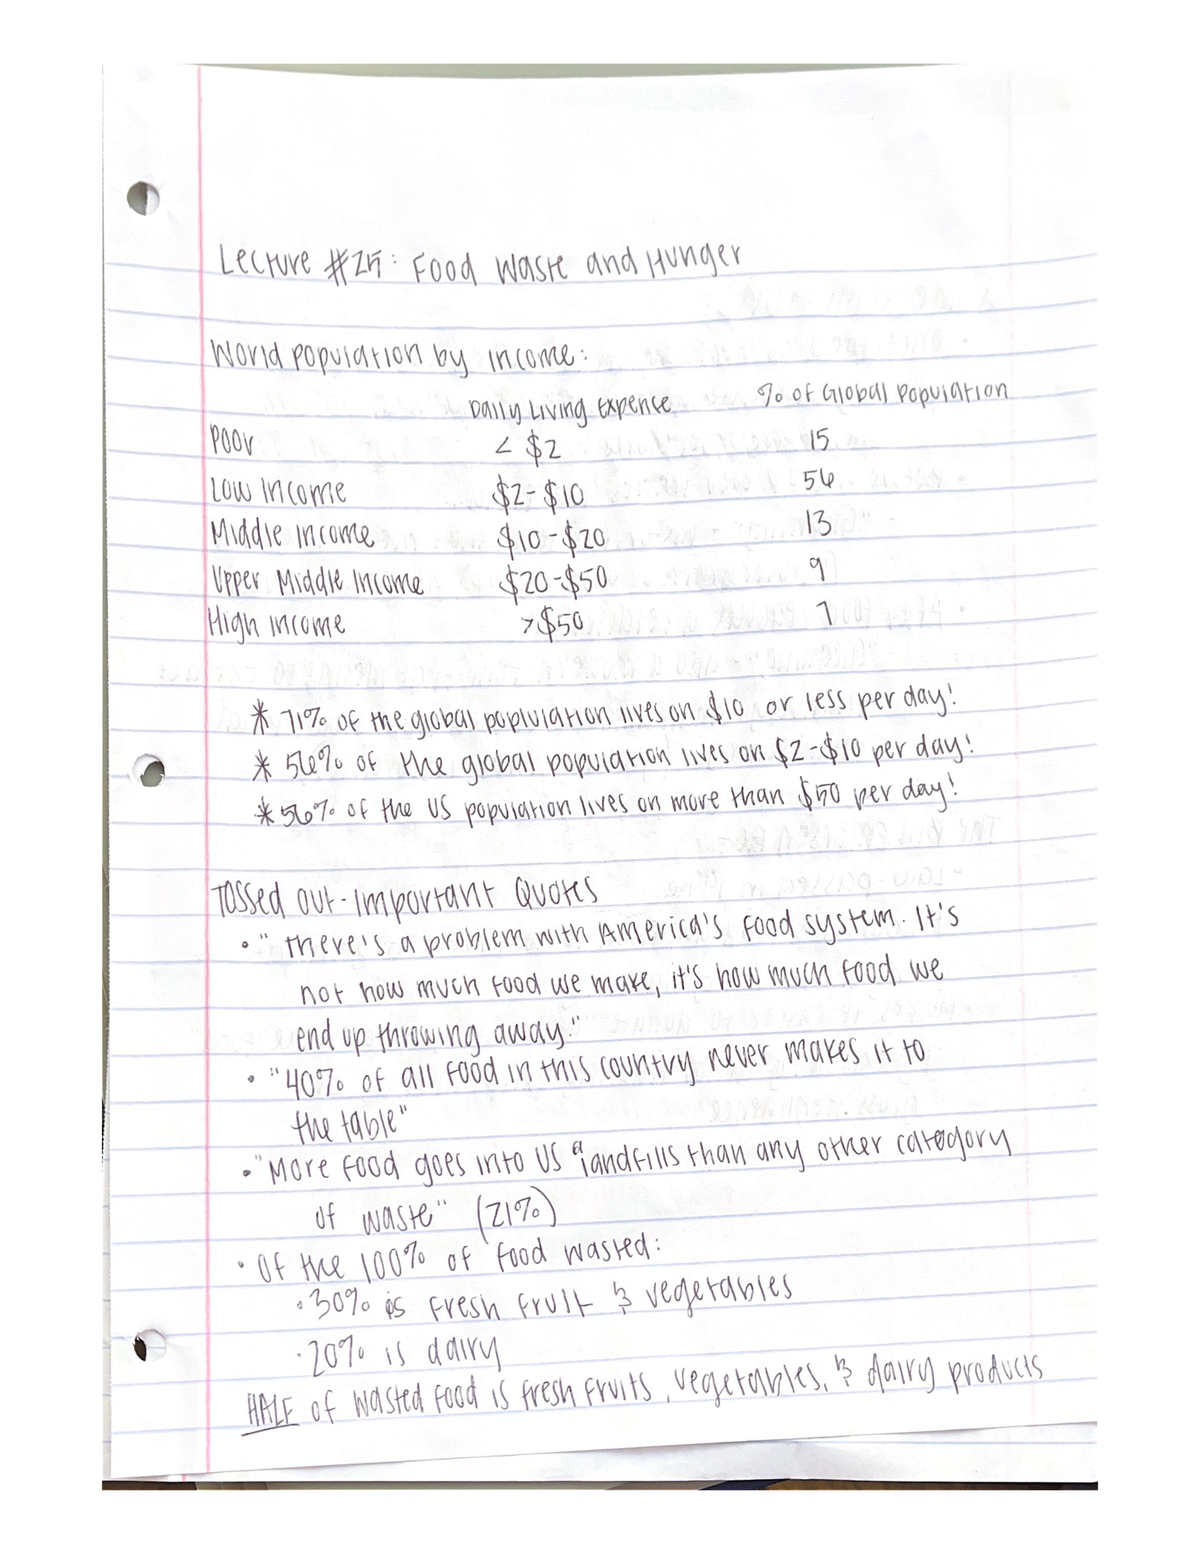 Lecture #25: Food Waste and Hunger
World population by income:
Daily Living Expence % of Global Population
Poor < $2 15
Low Income $2-$10 56
Middle Income $10-$20 13
Upper Middle Income $20-$50 9
High Income >$50 7
* 71% of the global popluation lives on $10 or less per day!
* 56% of the global population lives on $2-$10 per day!
* 56% of the US population lives on more than $50 per day!
Tossed Out - Important Quotes
• "there's a problem with America's food system. It's
not how much food we make, it's how much food we
end up throwing away."
• "40% of all food in this country never makes it to
the table"
• "More food goes into US landfills than any other category
of waste" (21%)
• Of the 100% of food wasted:
• 30% is fresh fruit & vegetables
• 20% is dairy
HALF of wasted food is fresh fruits, vegetables, & dairy products